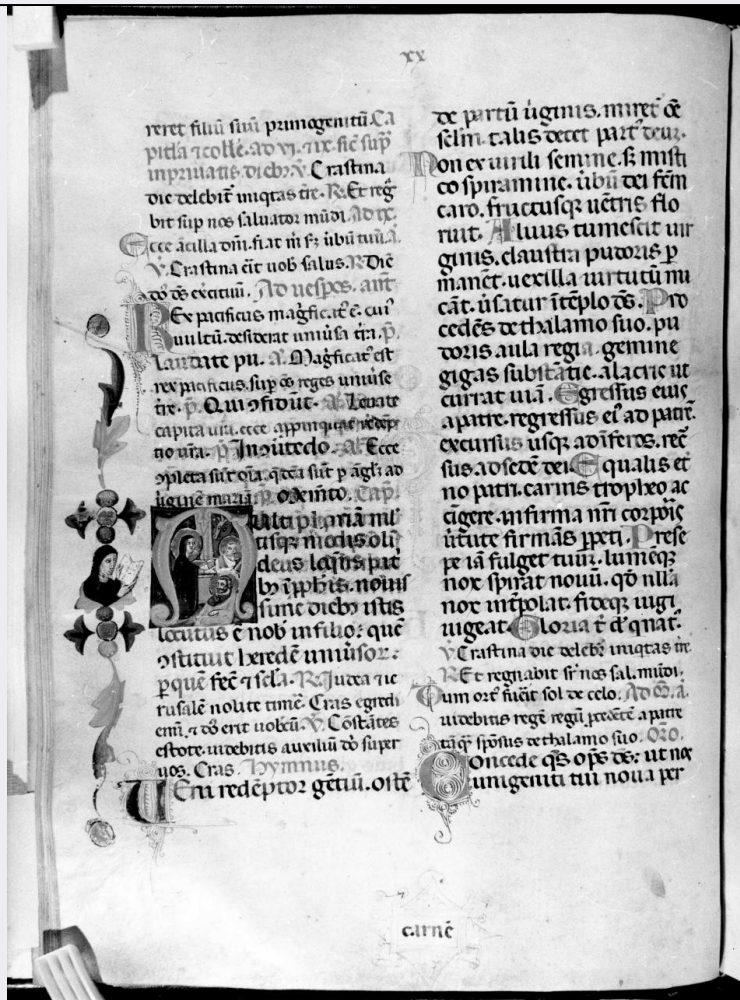 xx
reret filiũ suũ primogenitũ. Ca
pitła ⁊ collẽ. ad vi. ⁊ ix. sic̃ sup̃
in priuatis dieb₉. ℣. Crastina
die delebit̃ iniq̃tas tr̃e. ℟. Et reg̃
bit sup nos saluator mũdi. Ad ix.
Ecce ãcilla dñi. fiat m̃ s̃ ũbũ tuũ.
℣. Crastina erit uob̃ salus. ℟. Dic̃
dñs ds̃ exercituũ. Ad uesp̃os. ant̃
Rex pacificus mag̃ficat᷒ ẽ. cui᷒
uultũ desiderat uniũsa tr̃a. p̃.
Laudate pu. a. Mag̃ficat᷒ est
rex pacificus sup oẽs reges uniũse
tr̃e. p̃. Qui ꝯfidũt. añ. Leuate
capita ur̃a. ecce appropinquat redẽp
tio ur̃a. p̃. In ꝯuertẽdo. añ. Ecce
ꝯpleta sũt oĩa. q̃ dc̃a sũt p ãgl̃ʒ ad
uirginẽ mariã. Cap̃.
Multiphariã mł
tisq̃ modis oli
deus loq̃ns pat̃
b₉ ĩ ꝓphis. nouis
sime dieb₉ istis
locutus ẽ nob̃ in filio: quẽ
ꝯstituit heredẽ uniũsoꝝ:
ꝑ quẽ fec̃ ⁊ scl̃a. ℟. Iudea ⁊ ie
rusalẽ nolite timẽ. Cras egredi
emĩ. ⁊ dñs erit uobcũ. ℣. Cõstãtes
estote. uidebitis auxiliũ dñi super
uos. Cras. Hymnus.
Ueni redẽptor gẽtiũ. ostẽ
de partũ ũginis. miret᷒ oẽ
sclm̃. talis decet part᷒ deũ.
Non ex uirili semine. s̃ misti
co spiramine. ũbũ dei fc̃m
caro. fructusq̃ uẽtris flo
ruit. Aluus tumescit uir
ginis. claustra pudoris ꝑ
manẽt. uexilla uirtutũ mi
cãt. ũsatur ĩ tẽplo ds̃. Pro
cedẽs de thalamo suo. pu
doris aula regia. gemine
gigas substãtie. alacris ut
currat uiã. Egressus eius
a patre. regressus ei᷒ ad patrẽ.
excursus usq̃ ad ĩferos. rec̃
sus. ad sedẽ dei. Equalis et̃
no patri. carnis tropheo ac
cĩgere. infirma nr̃i corpõis
ũtute firmãs ꝑpeti. Prese
pe iã fulget tuũ. lumẽq̃
nox spirat nouũ. qđ nulla
nox int̃polat. fideq̃ iugi
luceat. Gloria t᷒ dñe q nat᷒.
℣. Crastina die delebit̃ iniq̃tas tr̃e
℟. Et regnabit s̃ nos sal. mũdi.
Cum ort᷒ fũit sol de celo. Ad m̃. a.
uidebitis regẽ regũ ꝓcedẽtẽ a patre
tãq̃ spõsus de thalamo suo. Or̃o.
Concede q̃s oꝑs ds̃: ut nos
unigeniti tui noua per
carnẽ